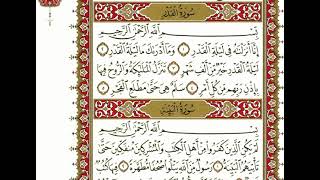 سورة القدر
بسم الله الرحمن الرحيم
إنا أنزلناه في ليلة القدر ١ وما أدراك ما ليلة القدر ٢
ليلة القدر خير من ألف شهر ٣ تنزل الملائكة والروح فيها
بإذن ربهم من كل أمر ٤ سلام هي حتى مطلع الفجر ٥
سورة البينة
بسم الله الرحمن الرحيم
لم يكن الذين كفروا من أهل الكتاب والمشركين منفكين حتى
تأتيهم البينة ١ رسول من الله يتلو صحفا مطهرة ٢ فيها كتب